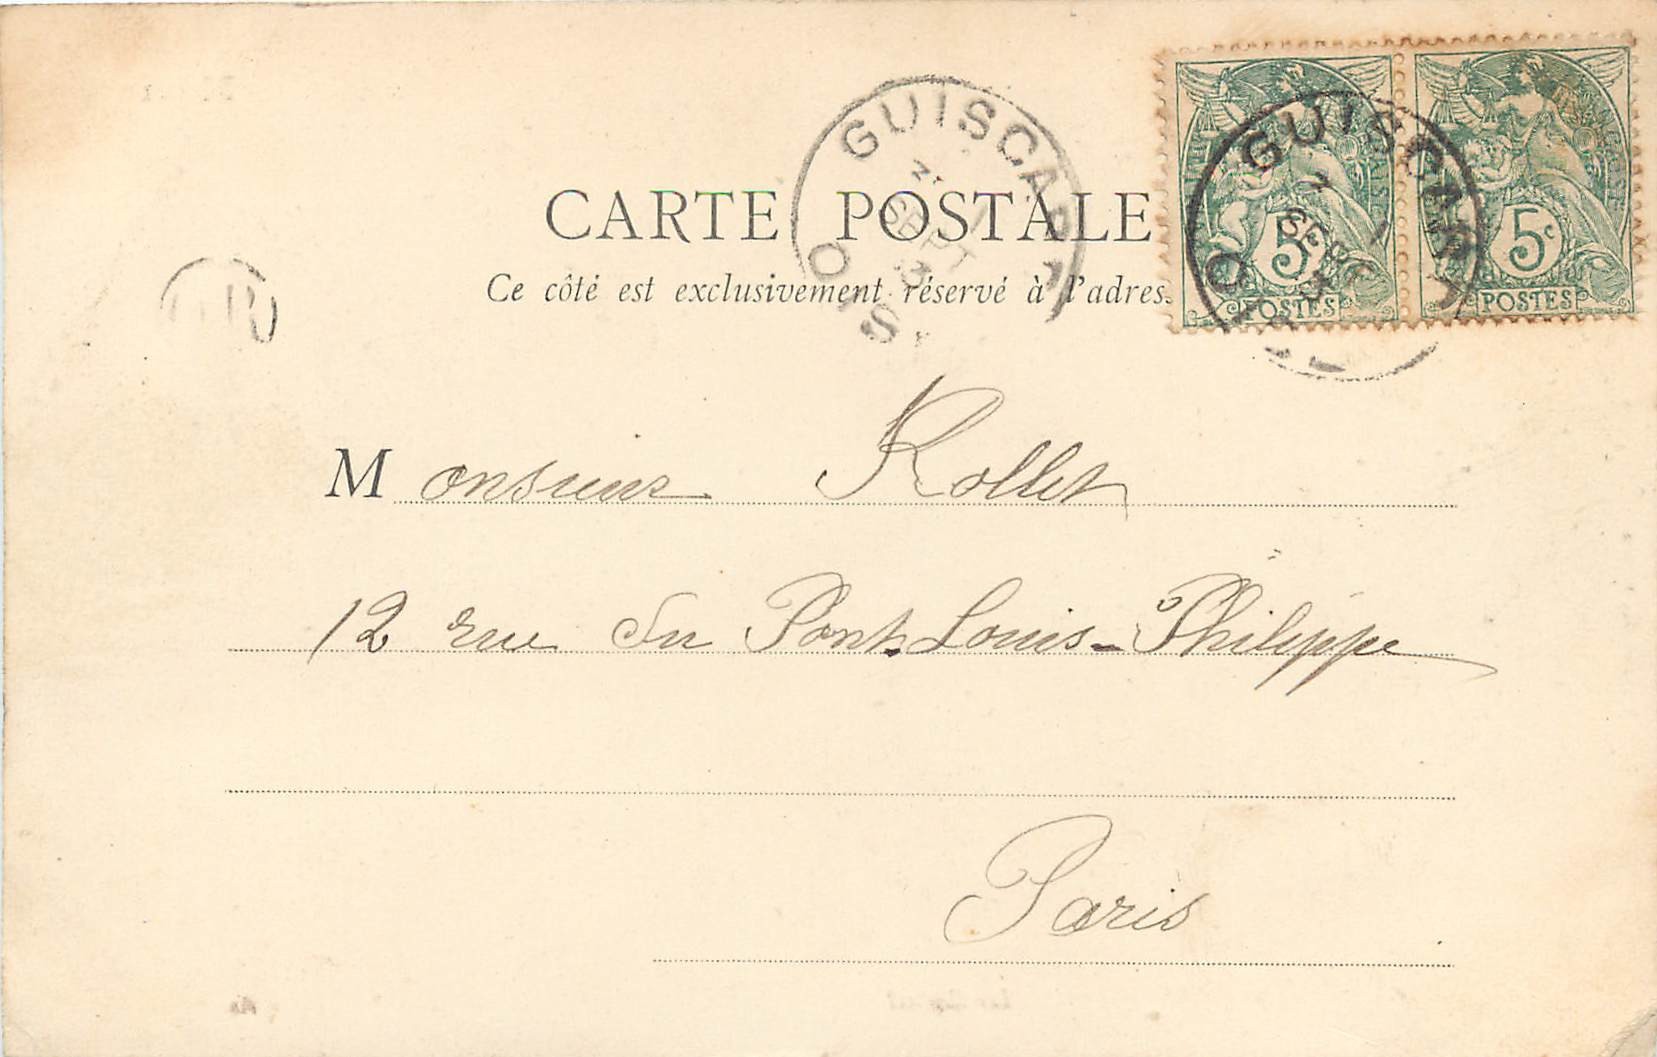 CARTE POSTALE
Ce côté est exclusivement réservé à l'adres
GUISCARD
OISE
SEPT
GUISCARD
SEPT
5c
POSTES
5c
POSTES
Monsieur Rollet
12 rue du Pont-Louis-Philippe
Paris